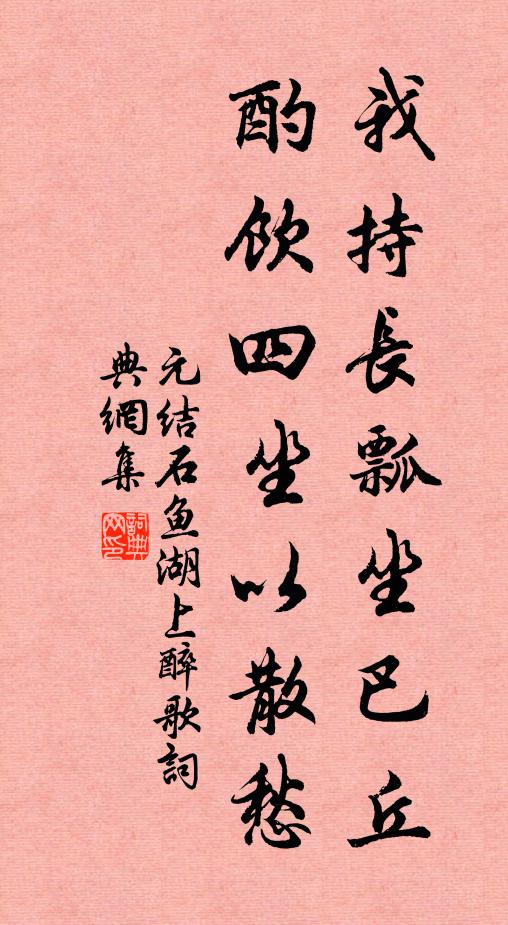 我持長瓢坐巴丘
酌飲四坐以散愁
元结石鱼湖上醉歌詞
典網集
詞典网印